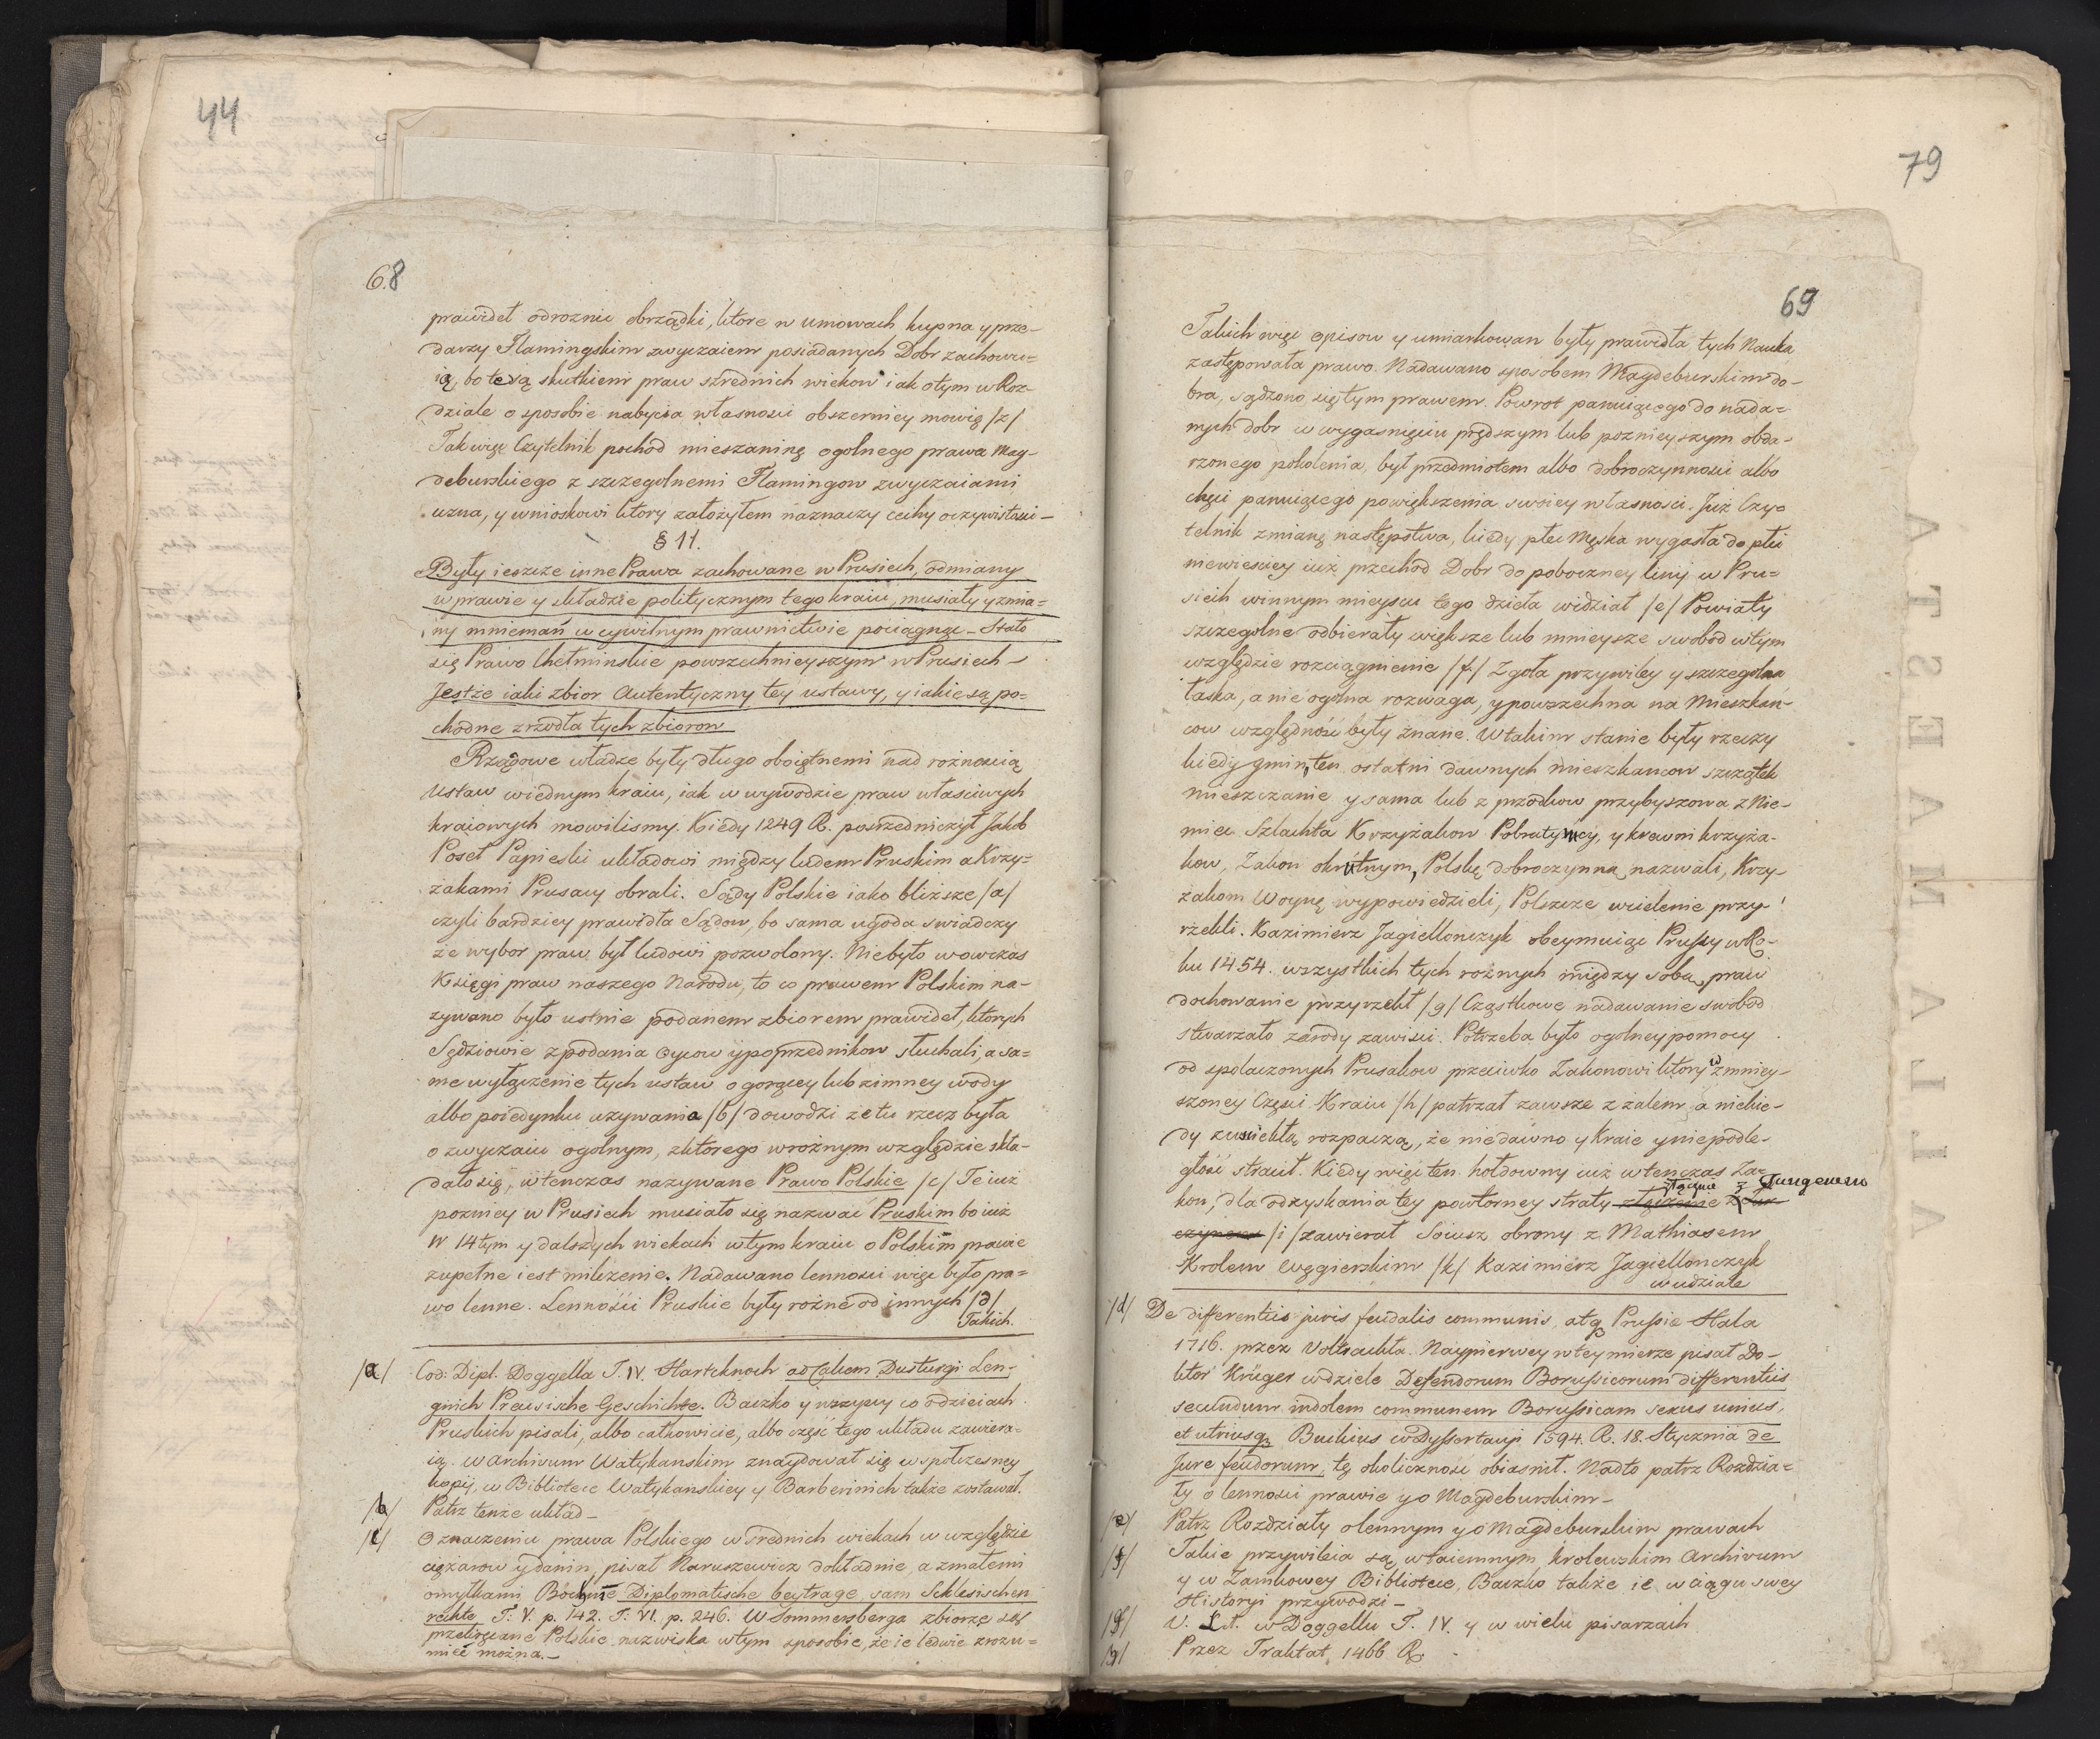 44
68
prawideł odroznia obrządki, ktore w umowach kupna y prze-
darzy Flamingskim zwyczaiem posiadanych Dobr zachowu=
ią, bo te są skutkiem praw szrednich wiekow iak otym w Roz-
dziale o sposobie nabycia własnosci obszerniey mowię /z/
Tak więc Czytelnik pochod mieszaninę ogolnego prawa Mag-
deburskiego z szczegolnemi Flamingow zwyczaiami
uzna, y wnioskowi ktory załozyłem naznaczy cechy oczywistosci -
§ 11.
Były ieszcze inne Prawa zachowane w Prusiech, odmiany
w prawie y składzie politycznym tego kraiu, musiały y zmia=
ny mniemań w cywilnym prawnictwie pociągnąc - Stało
się Prawo Chełminskie powszechnieyszym w Prusiech -
Jestże iaki zbior Autentyczny tey ustawy, y iakie są po=
chodne zrzodła tych zbiorow
Rządowe władze były długo oboiętnemi nad roznoscią
Ustaw wiednym kraiu, iak w wywodzie praw własciwych
kraiowych mowilismy. Kiedy 1249 R. posrzedniczył Jakob
Poseł Papieski układowi między ludem Pruskim a Krzy=
żakami Prusacy obrali. Sądy Polskie iako bliższe /a/
czyli bardziey prawidła Sądow, bo sama ugoda swiadczy
że wybor praw był ludowi pozwolony. Niebyło wowczas
Księgi praw naszego Narodu, to co prawem Polskim na-
zywano było ustnie podanem zbiorem prawideł, ktorych
Sędziowie z podania Oycow y poprzednikow słuchali, a sa=
me wyłączenie tych ustaw o gorącey lub zimney wody
albo poiedynku uzywania /b/ dowodzi że tu rzecz była
o zwyczaiu ogolnym, z ktorego w rożnym względzie skła-
dało się, wtenczas nazywane Prawo Polskie /c/ Te iuz
pozniey w Prusiech musiało się nazwać Pruskim bo iuz
W 14tym y dalszych wiekach w tym kraiu o Polskim prawie
zupełne iest milczenie. Nadawano lennosci więc było pra=
wo lenne. Lenności Pruskie były rożne od innych /d/
Takich.
/a/ Cod: Dipl. Doggella T. IV. Hartcknoch ad Calcem Dusburgi Len-
gnich Preusische Geschichte. Baczko y wszyscy co o dzieiach
Pruskich pisali, albo całkowicie, albo część tego układu zawiera=
ią. w Archivum Watykanskim znaydował się w społczesney
kopij, w Bibliotece Watykanskiey y Barberinich także zostawał.
/b/ Patrz tenze układ -
/c/ O znaczeniu prawa Polskiego w srednich wiekach w względzie
ciężarow y danin, pisał Naruszewicz dokładnie, a z małemi
omyłkami Böhme Diplomatische beytrage sam Schlesischen
rechte T. V. p. 142. T. VI. p. 246. W Sommersberga zbiorze są
przekręcane Polskie nazwiska w tym sposobie, że ie ledwie zrozu=
mieć można. -
79
69
Takich więc opisow y umiarkowan były prawidła tych Nauka
zastępowała prawo. Nadawano sposobem Magdeburskim do-
bra, sądzono się tym prawem. Powrot panuiącego do nada=
nych dobr w wygasnięciu prędszym lub poznieyszym obda-
rzonego pokolenia, był przedmiotem albo dobroczynnosci albo
chęci panuiącego powiększenia swoiey własnosci. Juz Czy=
telnik zmianę następstwa, kiedy płec Męska wygasła do płci
niewiesciey iuż przechod Dobr do poboczney linij w Pru=
siech w innym mieyscu tego dzieła widział /e/ Powiaty
szczegolne odbierały większe lub mnieysze swobod w tym
względzie rozciągnienie /f/ Zgoła przywiley y szczegolna
łaska, a nie ogolna rozwaga, y powszechna na Mieszkań-
cow względność były znane. W takim stanie były rzeczy
kiedy gmin, ten ostatni dawnych mieszkancow szczątek
mieszczanie y sama lub z przodkow przybyszowa z Nie-
miec Szlachta Krzyżakow Pobratymcy, y krewni krzyża-
kow, Zakon okrutnym, Polskę dobroczynną nazwali, Krzy-
żakom Woynę wypowiedzieli, Polszcze wcielenie przy-
rzekli. Kazimierz Jagiellonczyk obeymuiąc Prussy w Ro-
ku 1454. wszystkich tych rożnych między sobą praw
dochowanie przyrzekł /g/ Cząstkowe nadawanie swobod
stwarzało zarody zawisci. Potrzeba było ogolney pomocy
od spolaczonych Prusakow przeciwko Zakonowi ktory w zmniey-
szoney Częsci Kraiu /h/ patrzał zawsze z zalem a niekie-
dy z wsciekłą rozpaczą, że niedawno y Kraie y niepodle-
głość stracił. Kiedy więc ten hołdowny iuż wtenczas Za=
kon, dla odzyskania tey powtorney straty złączenie złącznie z Tungenem
/i/ zawierał Soiusz obrony z Mathiasem
Krolem Węgierskim /k/ Kazimierz Jagiellonczyk
w udziale
/d/ De differentiis juris feudalis communis, atq Prussie Hala
1716. przez Voltrachta. Naypierwey w tey mierze pisał Do-
ktor Krüger w dziele De fendorum Borussicorum differentiis
secundum indolem communem Borussicam sexus unius,
et utriusq. Buckius w Dyssertacyi 1594. R. 18. Stycznia de
Jure feudorum, tę okoliczność obiasnił. Nadto patrz Rozdzia=
ły o lennosci prawie y o Magdeburskim -
/e/ Patrz Rozdziały o lennym y o Magdeburskim prawach
/f/ Takie przywileia są w taiemnym krolewskim Archivum
y w Zamkowey Bibliotece, Baczko także ie w ciągu swey
Historyi przywodzi -
/g/ V. L. A. w Doggellu T. IV. y w wielu pisarzach
/h/ Przez Traktat 1466 R.
ALTA LANDESTA